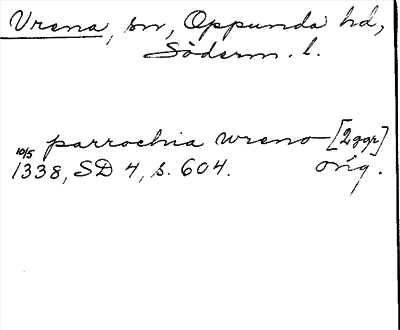 Vrena, sn, Oppunda hd,
Söderm. l.
parrochia wreno [2ggr]
10/5 1338, SD 4, s. 604. orig.